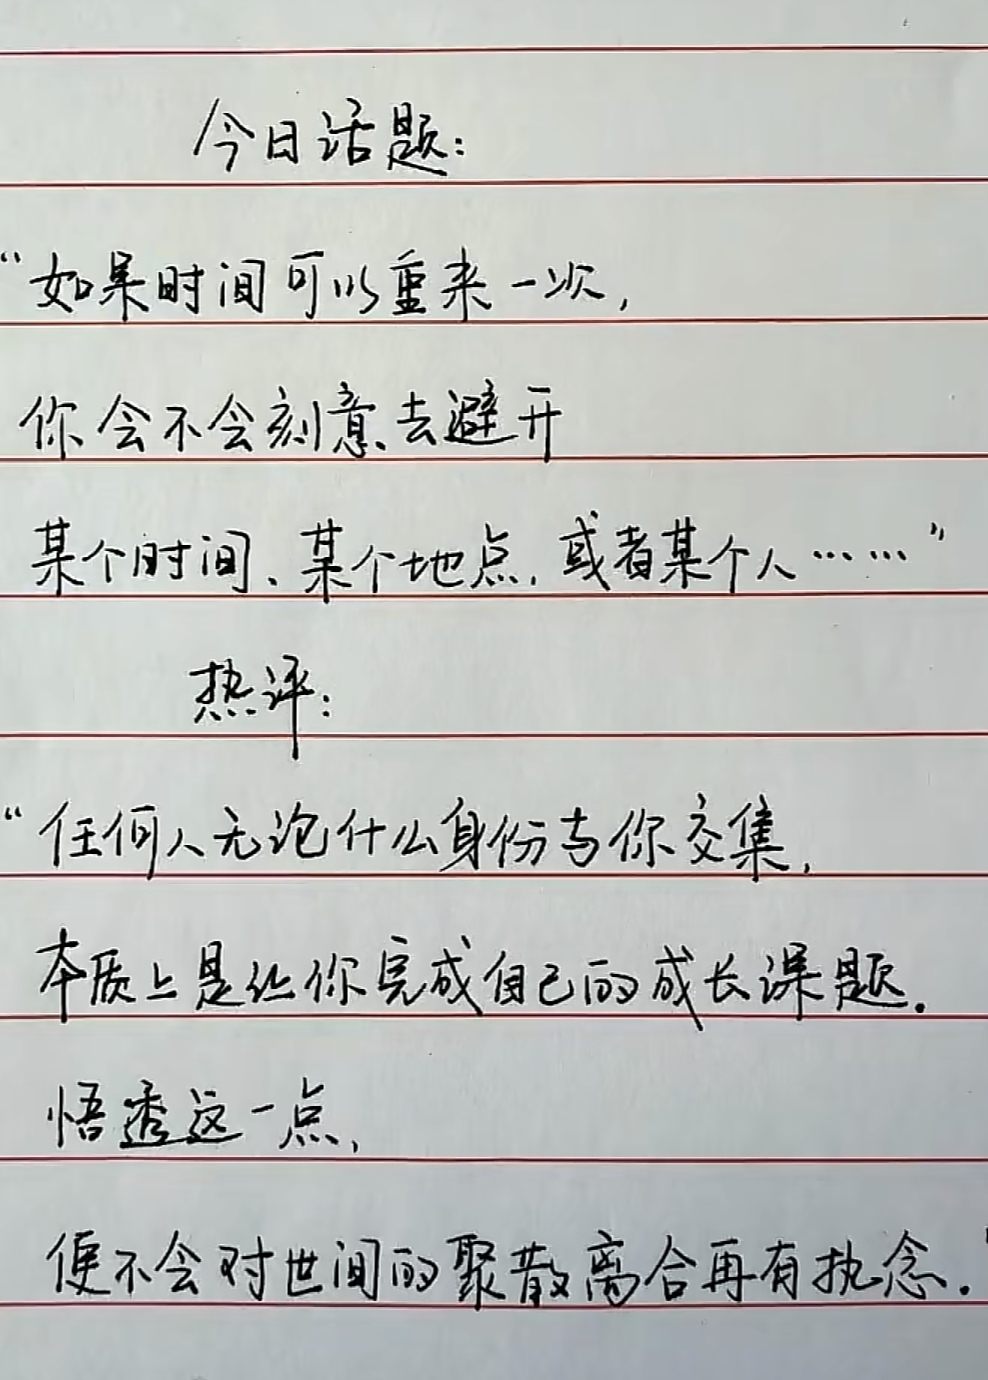 今日话题:
“如果时间可以重来一次,
你会不会刻意去避开
某个时间、某个地点,或者某个人……”
热评:
“任何人无论什么身份与你交集,
本质上是让你完成自己的成长课题.
悟透这一点,
便不会对世间的聚散离合再有执念.”